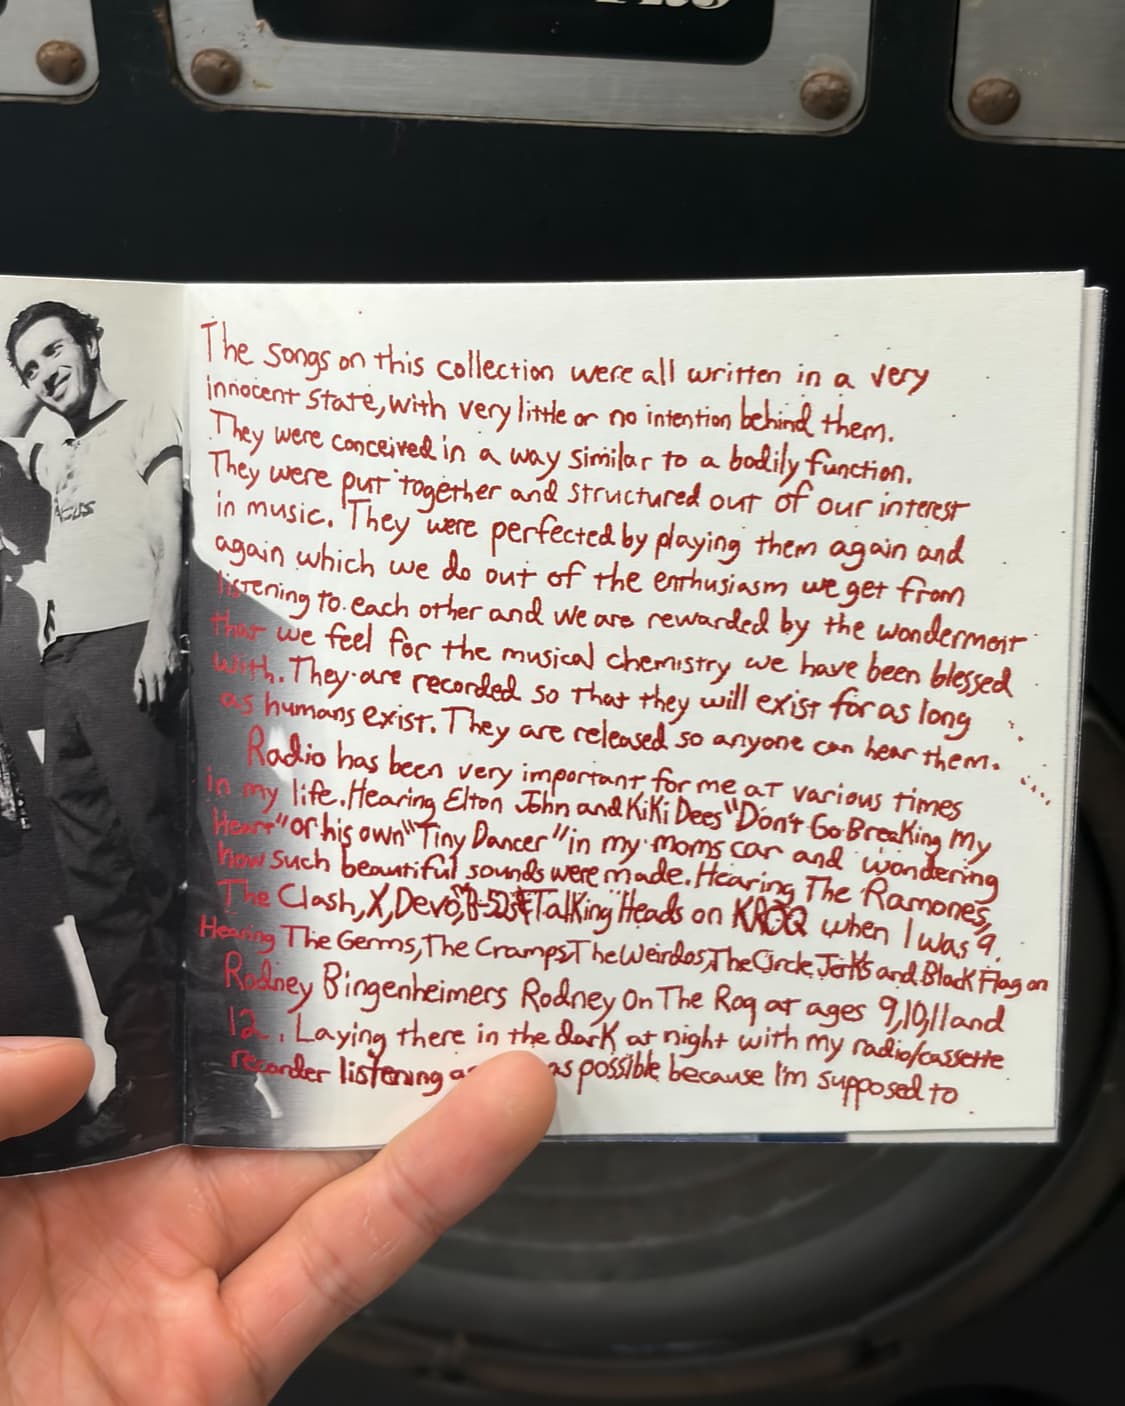 The songs on this collection were all written in a very
innocent state, with very little or no intention behind them.
They were conceived in a way similar to a bodily function.
They were put together and structured out of our interest
in music. They were perfected by playing them again and
again which we do out of the enthusiasm we get from
listening to each other and we are rewarded by the wonderment
that we feel for the musical chemistry we have been blessed
with. They are recorded so that they will exist for as long
as humans exist. They are released so anyone can hear them.
Radio has been very important for me at various times
in my life. Hearing Elton John and KiKi Dees "Don't Go Breaking My
Heart" or his own "Tiny Dancer" in my moms car and wondering
how such beautiful sounds were made. Hearing The Ramones,
The Clash, X, Devo, B-52s & Talking Heads on KROQ when I was 9.
Hearing The Germs, The Cramps, The Weirdos, The Circle Jerks and Black Flag on
Rodney Bingenheimers Rodney On The Roq at ages 9,10,11 and
12. Laying there in the dark at night with my radio/cassette
recorder listening as possible because I'm supposed to